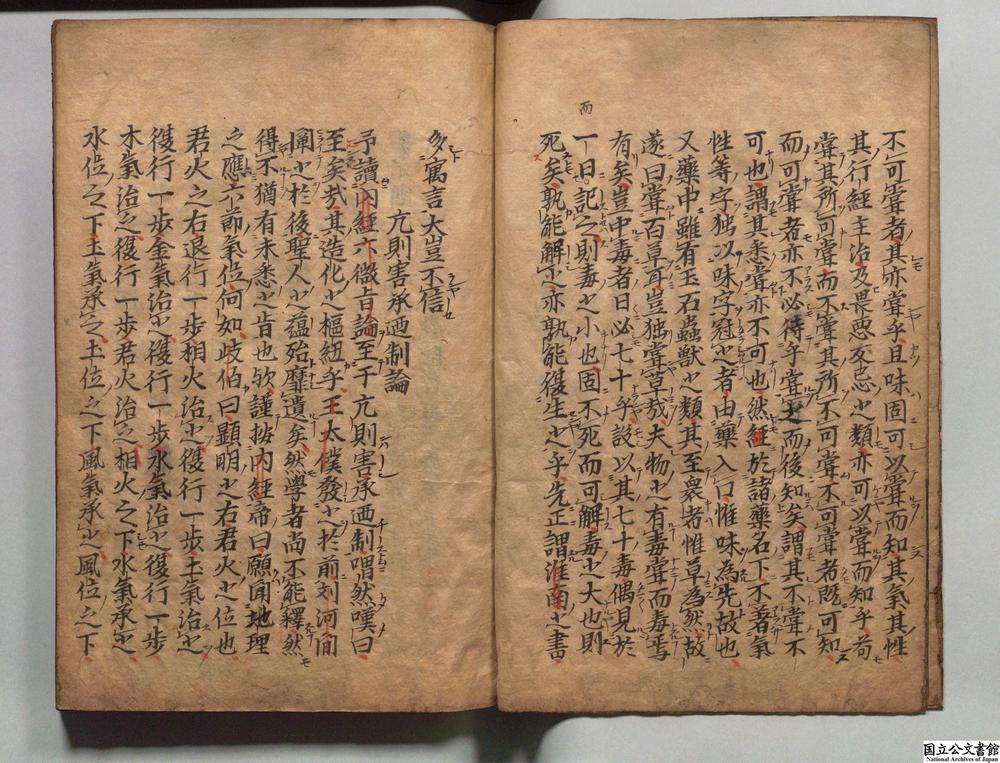 而
不可甞者其亦甞乎且味固可以甞而知其氣其性
其行經主治及畏惡反忌之類亦可以甞而知乎苟
甞其所可甞而不甞其所不可甞不可甞者既可知
而可甞者亦不必待乎甞之而後知矣謂其不甞不
可也謂其悉甞亦不可也然經於諸藥名下不著氣
性等字独以味字冠之者由藥入口惟味為先故也
又藥中雖有玉石蟲獣之類其至衆者惟草為然故
遂曰甞百草耳豈独甞草哉夫物之有毒甞而毒焉
有矣豈中毒者日必七十乎設以其七十毒偶見於
一日記之則毒之小也固不死而可解毒之大也則
死矣孰能解之亦孰能復生之乎先正謂淮南之書
多寓言大豈不信
亢則害承迺制論
予讀内經六微旨論至于亢則害承迺制喟然嘆曰
至矣哉其造化之樞紐乎王太僕發之於前刘河間
闡之於後聖人之蘊殆靡遺矣然學者尚不能釋然
得不猶有未悉之旨也欤謹按内經帝曰願聞地理
之應六節氣位何如岐伯曰顕明之右君火之位也
君火之右退行一歩相火治之復行一歩土氣治之
復行一歩金氣治之復行一歩水氣治之復行一歩
木氣治之復行一歩君火治之相火之下水氣承之
水位之下土氣承之土位之下風氣承之風位之下
国立公文書館
National Archives of Japan